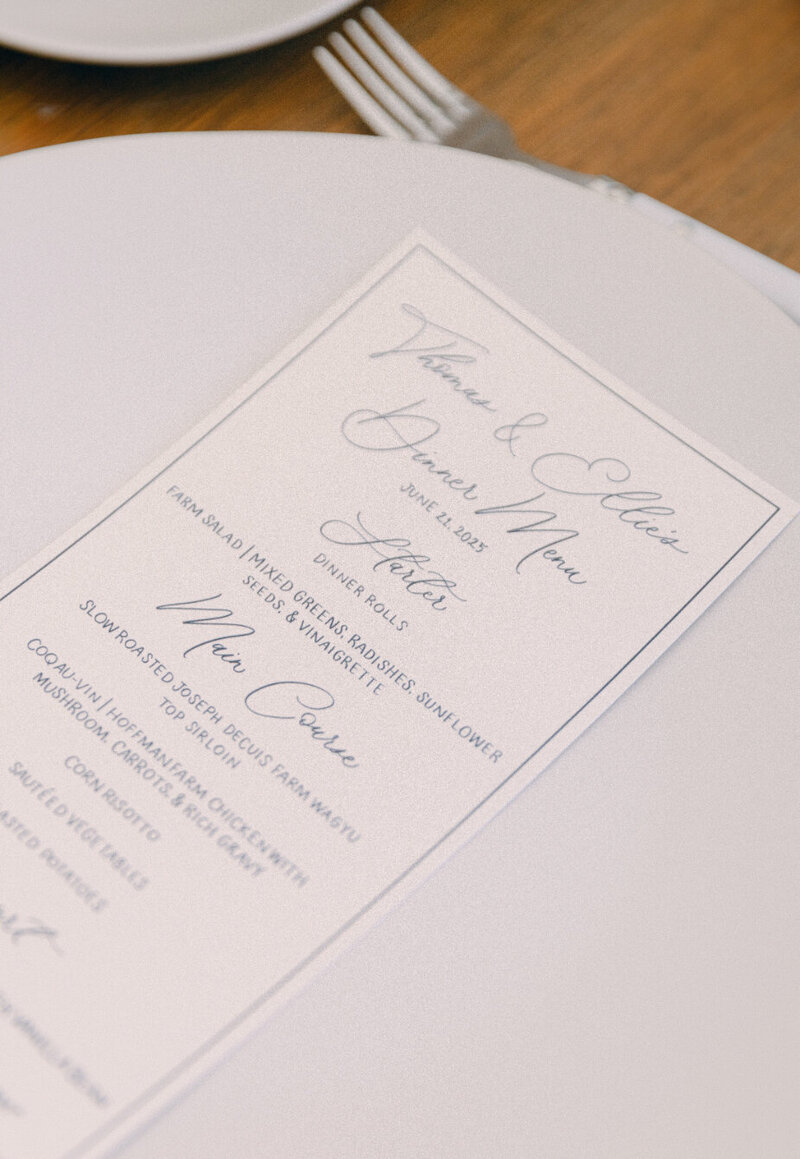 Thomas & Ellie's
Dinner Menu
JUNE 21, 2025
Starter
DINNER ROLLS
FARM SALAD | MIXED GREENS, RADISHES, SUNFLOWER
SEEDS, & VINAIGRETTE
Main Course
SLOW ROASTED JOSEPH DECUIS FARM WAGYU
TOP SIRLOIN
COQ AU-VIN | HOFFMAN FARM CHICKEN WITH
MUSHROOM, CARROTS, & RICH GRAVY
CORN RISOTTO
SAUTÉED VEGETABLES
POTATOES